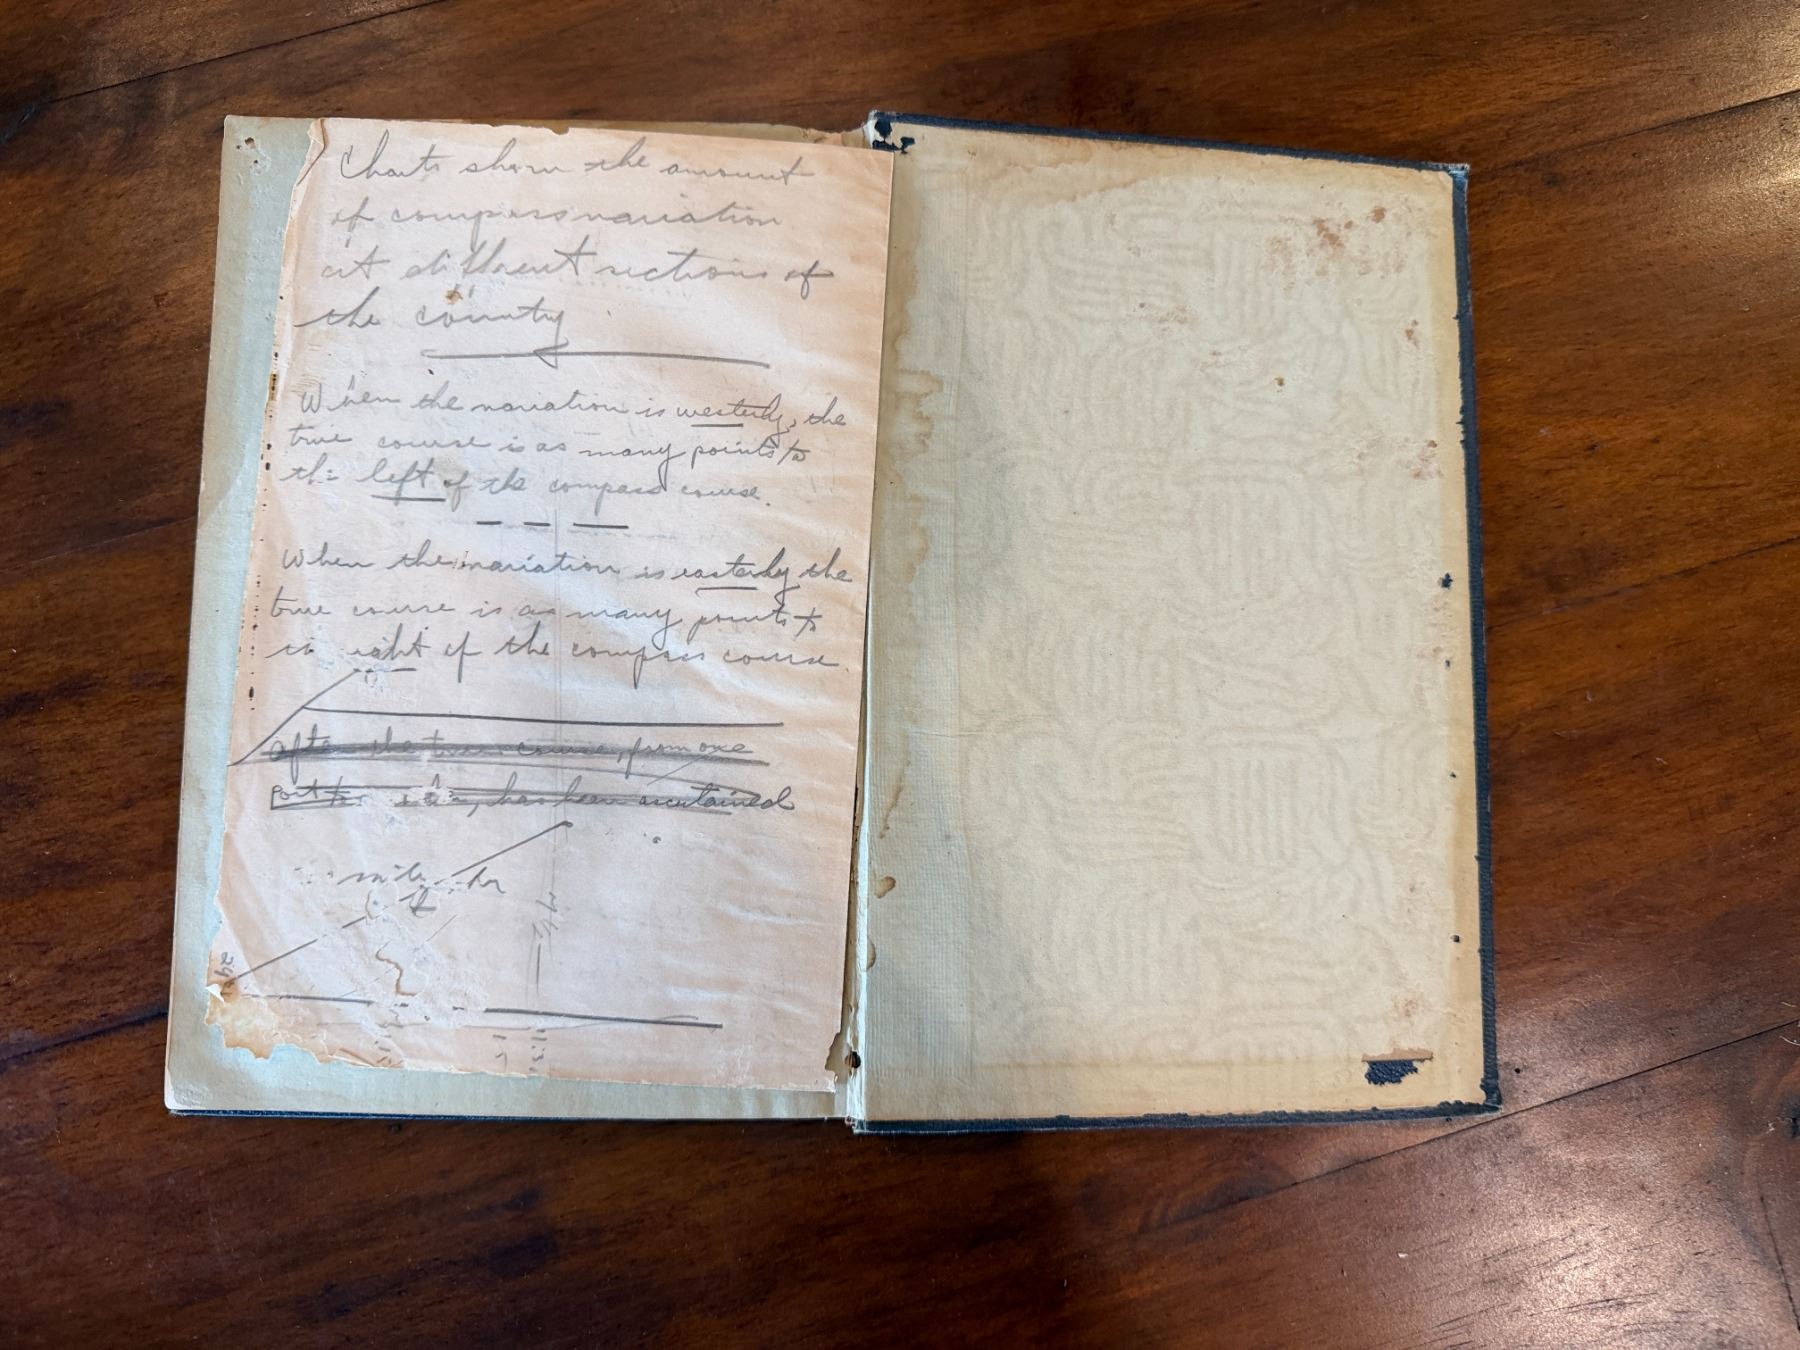 Charts show the amount
of compass variation
at different sections of
the country
When the variation is westerly, the
true course is as many points to
the left of the compass course.
When the variation is easterly the
true course is as many points to
right of the compass course.
after the true course, from one
port to has been ascertained